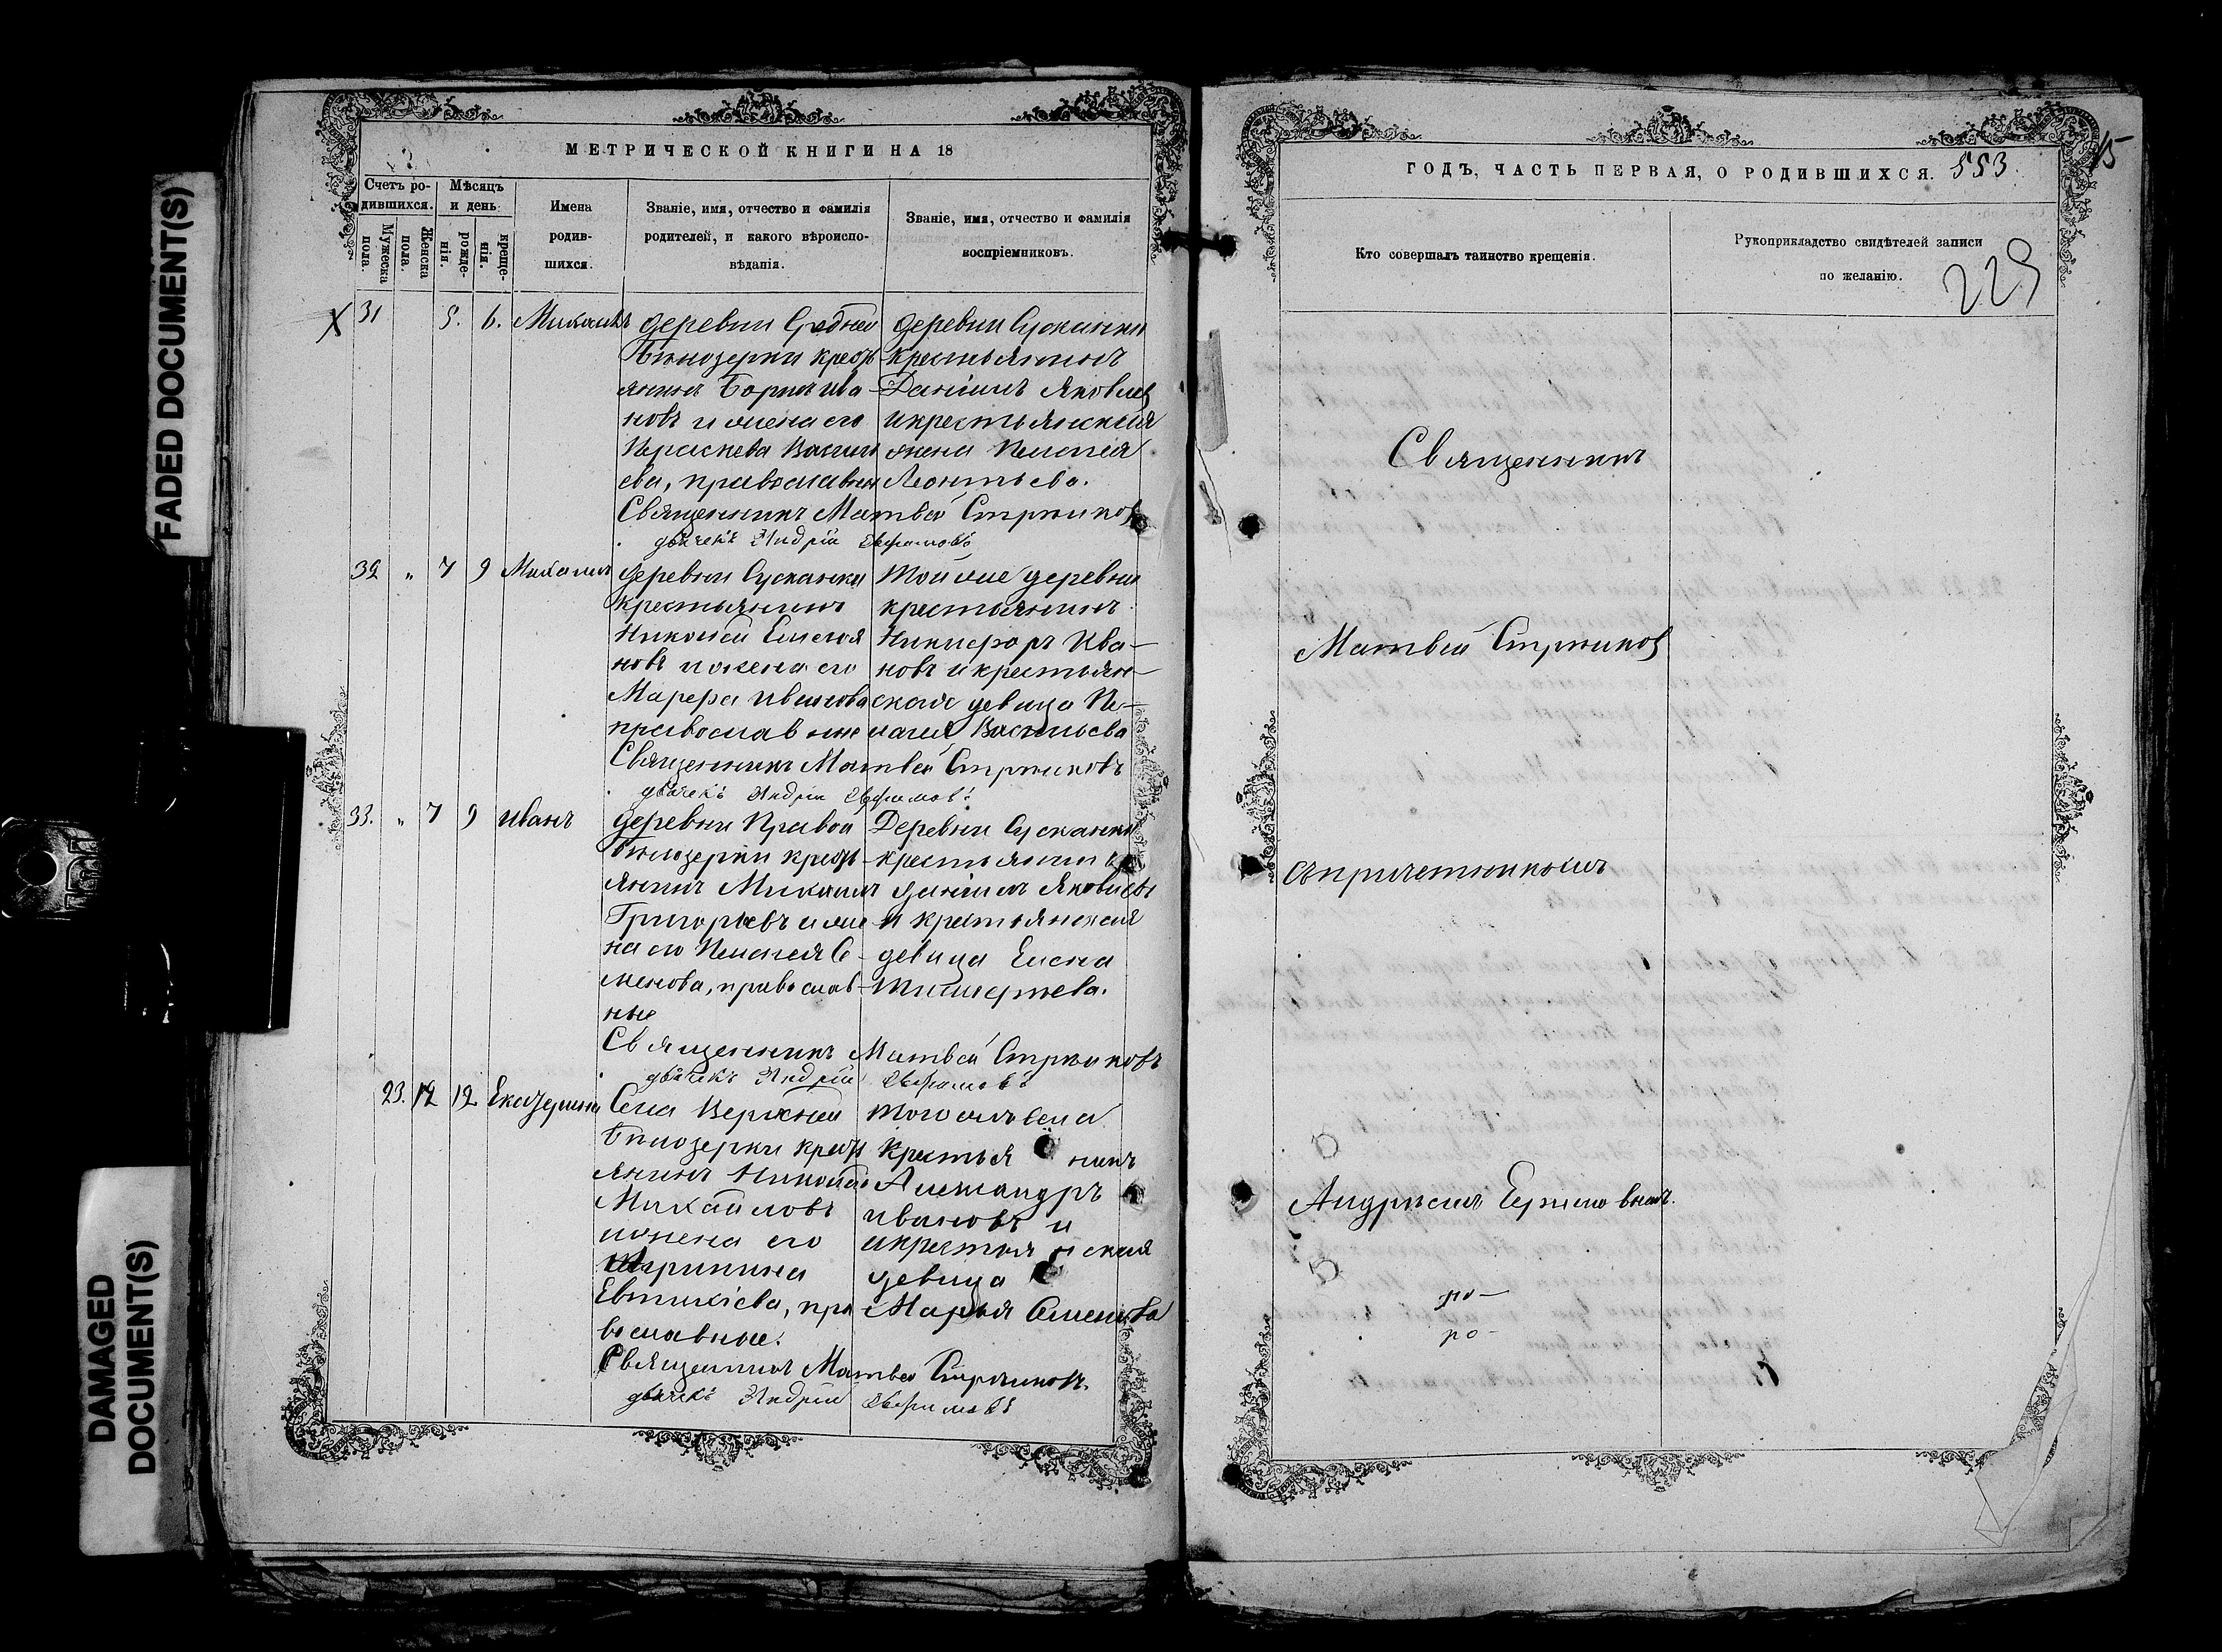 FADED DOCUMENT(S)
DAMAGED
DOCUMENT(S)
МЕТРИЧЕСКОЙ КНИГИ НА 18
Счетъ ро-
дившихся.
Мужеска
пола.
Женска
пола.
Мѣсяцъ
и день
рожде-
нія.
креще-
нія.
Имена
родив-
шихся.
Званіе, имя, отчество и фамилія
родителей, и какого вѣроиспо-
вѣданія.
Званіе, имя, отчество и фамилія
воспріемниковъ.
X 31 5. 6. Михаилъ
деревни Средней
Бѣлозерки кресть
янинъ Борисъ Ива
новъ и жена его
Параскева Василь
ева, православные
деревни Сусканки
крестьянинъ
Даніилъ Яковлев
и крестьянская
жена Пелагея
Леонтьева.
Священникъ Матвей Стржиков
дьячекъ Андрей Ефимовъ
32 „ 7 9 Михаилъ
деревни Сусканки
крестьянинъ
Николай Емелья
новъ и жена его
Марфа Иванова
православные
Той же деревни
крестьянинъ
Никифоръ Ива-
новъ и крестьян-
ская девица Пе-
лагея Васильева
Священникъ Матвей Стржиковъ
дьячекъ Андрей Ефимовъ
33. „ 7 9 Иванъ
деревни Правой
Бѣлозерки кресть
янинъ Михаилъ
Григорьевъ и же
на его Пелагея Се
менова, православ-
ные
Деревни Сусканки
крестьянинъ
Даніилъ Яковлевъ
и крестьянская
девица Елена
Тимофеева.
Священникъ Матвей Стржиковъ
дьячекъ Андрей Ефимовъ
23. 12 12 Екатерина
Села Верхней
Бѣлозерки кресть
янинъ Николай
Михайловъ
и жена его
Ирина
Евтихіева, пра
вославные.
того же села
крестья нинъ
Александръ
Ивановъ и
и крестьян ская
девица
Марья Семенова
Священникъ Матвей Стржиковъ.
дьячекъ Андрей Ефимовъ
ГОДЪ, ЧАСТЬ ПЕРВАЯ, О РОДИВШИХСЯ. 553.
15
Кто совершалъ таинство крещенія.
Рукоприкладство свидѣтелей записи
по желанію.
229
Священникъ
Матвей Стржиков
съ причетникомъ
Андреемъ Ефимовымъ.